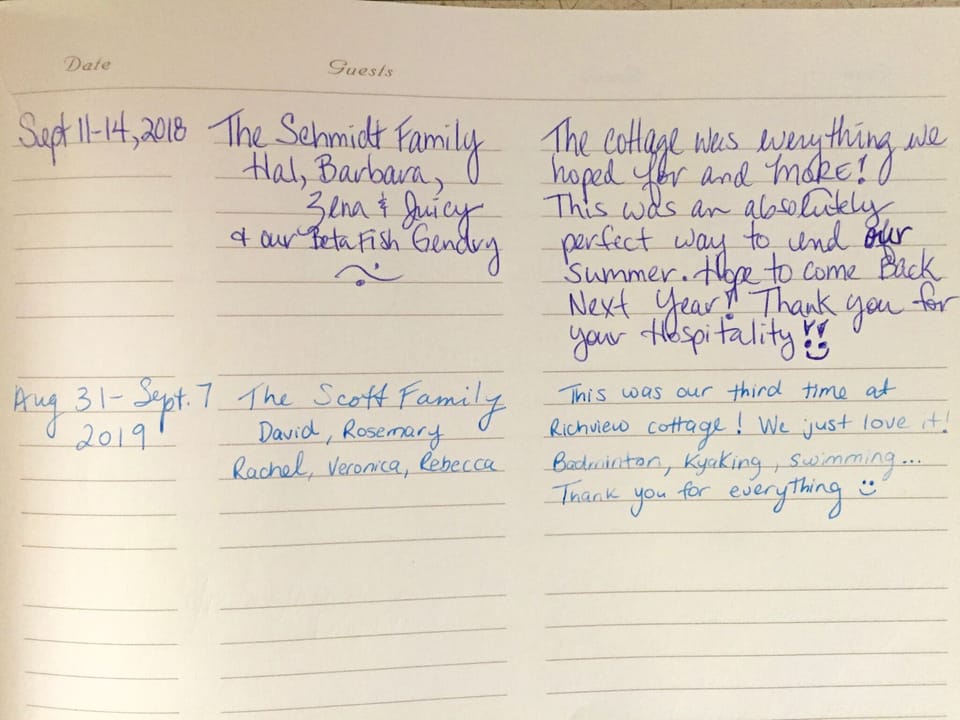 Date Guests
Sept 11-14, 2018 The Schmidt Family The cottage was everything we
Hal, Barbara, hoped for and MORE!
Zena & Juicy This was an absolutely
& our Beta Fish Gendry perfect way to end our
Summer. Hope to come Back
Next Year! Thank you for
your Hospitality!!
Aug 31- Sept. 7 The Scott Family This was our third time at
2019 David, Rosemary Richview cottage! We just love it!
Rachel, Veronica, Rebecca Badminton, Kyaking, swimming...
Thank you for everything